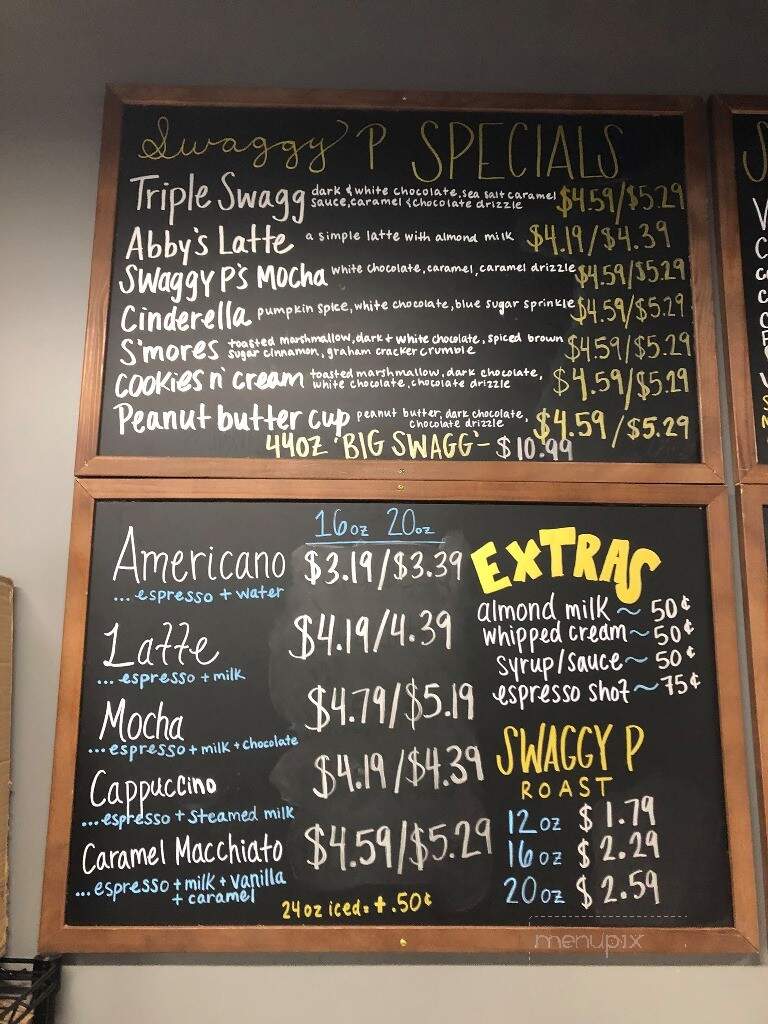 Swaggy P SPECIALS
Triple Swagg dark & white chocolate, sea salt caramel $4.59/$5.29
sauce, caramel & chocolate drizzle
Abby's Latte a simple latte with almond milk $4.19/$4.39
SWaggy P'S MOCHa white chocolate, caramel, caramel drizzle $4.59/$5.29
Cinderella pumpkin spice, white chocolate, blue sugar sprinkle $4.59/$5.29
S'mores toasted marshmallow, dark + white chocolate, spiced brown $4.59/$5.29
sugar cinnamon, graham cracker crumble
COOKies n' cream toasted marshmallow, dark chocolate, $4.59/$5.29
white chocolate, chocolate drizzle
Peanut butter cup peanut butter, dark chocolate, $4.59/$5.29
chocolate drizzle
44OZ "BIG SWAGG" - $10.99
16oz 20oz
Americano $3.19/$3.39
... espresso + water
Latte $4.19/4.39
... espresso + milk
Mocha $4.79/$5.19
... espresso + milk + chocolate
Cappuccino $4.19/$4.39
... espresso + steamed milk
Caramel Macchiato $4.59/$5.29
... espresso + milk + vanilla
+ caramel
24oz iced = +.50¢
EXTRAS
almond milk ~ 50¢
whipped cream ~ 50¢
syrup/sauce ~ 50¢
espresso shot ~ 75¢
SWAGGY P
ROAST
12oz $1.79
16oz $2.29
20oz $2.59
menupix